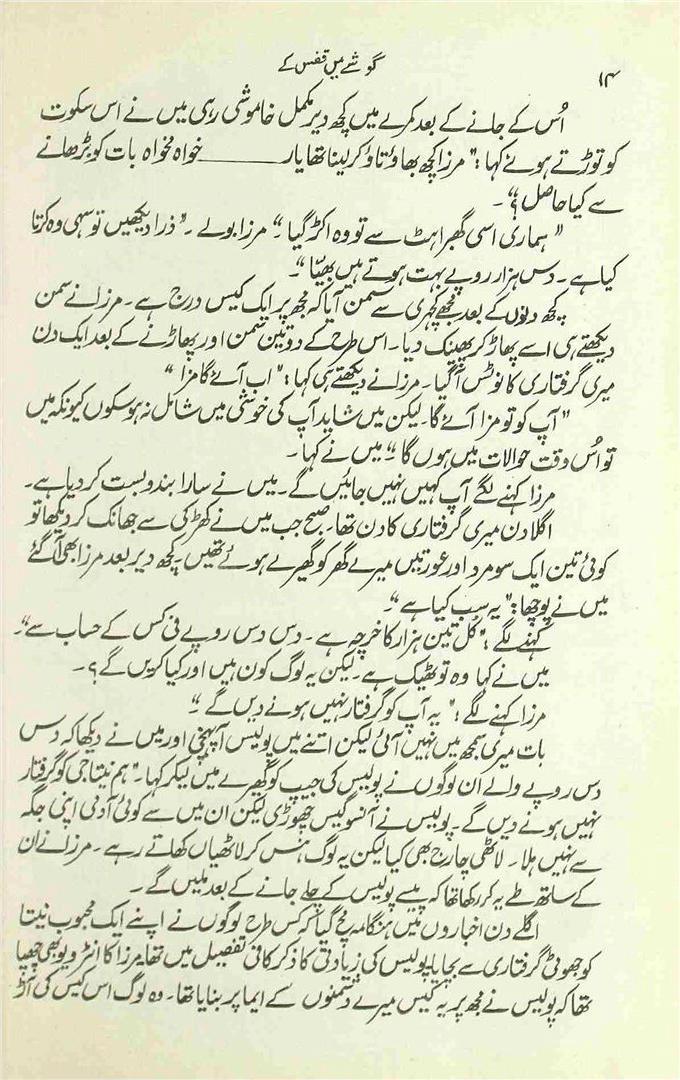 ۱۴
گوشے میں قفس کے
اُس کے جانے کے بعد کمرے میں کچھ دیر مکمل خاموشی رہی میں نے اس سکوت
کو توڑتے ہوئے کہا: "مرزا کچھ بھاؤ تاؤ کر لینا تھا یار ــــــــ خواہ مخواہ بات کو بڑھانے
سے کیا حاصل؟"۔
"ہماری اسی گھبراہٹ سے تو وہ اکڑ گیا۔" مرزا بولے۔ "ذرا دیکھیں تو سہی وہ کرتا
کیا ہے۔ دس ہزار روپے بہت ہوتے ہیں بھیّا"۔
کچھ دنوں کے بعد مجھے کچہری سے سمن آیا کہ مجھ پر ایک کیس درج ہے۔ مرزا نے سمن
دیکھتے ہی اسے پھاڑ کر پھینک دیا۔ اس طرح کے دو تین سمن اور پھاڑنے کے بعد ایک دن
میری گرفتاری کا نوٹس آ گیا۔ مرزا نے دیکھتے ہی کہا: "اب آئے گا مزا"
"آپ کو تو مزا آئے گا۔ لیکن میں شاید آپ کی خوشی میں شامل نہ ہو سکوں کیونکہ میں
تو اُس وقت حوالات میں ہوں گا"۔ میں نے کہا۔
مرزا کہنے لگے آپ کہیں نہیں جائیں گے۔ میں نے سارا بندوبست کر دیا ہے۔
اگلا دن میری گرفتاری کا دن تھا۔ صبح جب میں نے کھڑکی سے جھانک کر دیکھا تو
کوئی تین ایک سو مرد اور عورتیں میرے گھر کو گھیرے ہوئے تھیں۔ کچھ دیر بعد مرزا بھی آ گئے
میں نے پوچھا: "یہ سب کیا ہے"۔
کہنے لگے: "کُل تین ہزار کا خرچہ ہے۔ دس دس روپے فی کس کے حساب سے"۔
میں نے کہا وہ تو ٹھیک ہے۔ لیکن یہ لوگ کون ہیں اور کیا کریں گے؟۔
مرزا کہنے لگے: "یہ آپ کو گرفتار نہیں ہونے دیں گے"۔
بات میری سمجھ میں نہیں آئی لیکن اتنے میں پولیس آ پہنچی اور میں نے دیکھا کہ دس
دس روپے والے ان لوگوں نے پولیس کی جیپ کو گھیرے میں لیکر کہا۔ "ہم نیتا جی کو گرفتار
نہیں ہونے دیں گے۔ پولیس نے آنسو گیس چھوڑی لیکن ان میں سے کوئی آدمی اپنی جگہ
سے نہیں ہلا۔ لاٹھی چارج بھی کیا لیکن یہ لوگ ہنس کر لاٹھیاں کھاتے رہے۔ مرزا نے ان
کے ساتھ طے یہ کر رکھا تھا کہ پیسے پولیس کے چلے جانے کے بعد ملیں گے۔
اگلے دن اخباروں میں ہنگامہ مچ گیا کہ کس طرح لوگوں نے اپنے ایک محبوب نیتا
کو جھوٹی گرفتاری سے بچایا۔ پولیس کی زیادتی کا ذکر کافی تفصیل میں تھا۔ مرزا کا انٹرویو بھی چھپا
تھا کہ پولیس نے مجھ پر یہ کیس میرے دشمنوں کے ایما پر بنایا تھا۔ وہ لوگ اس کیس کی آڑ